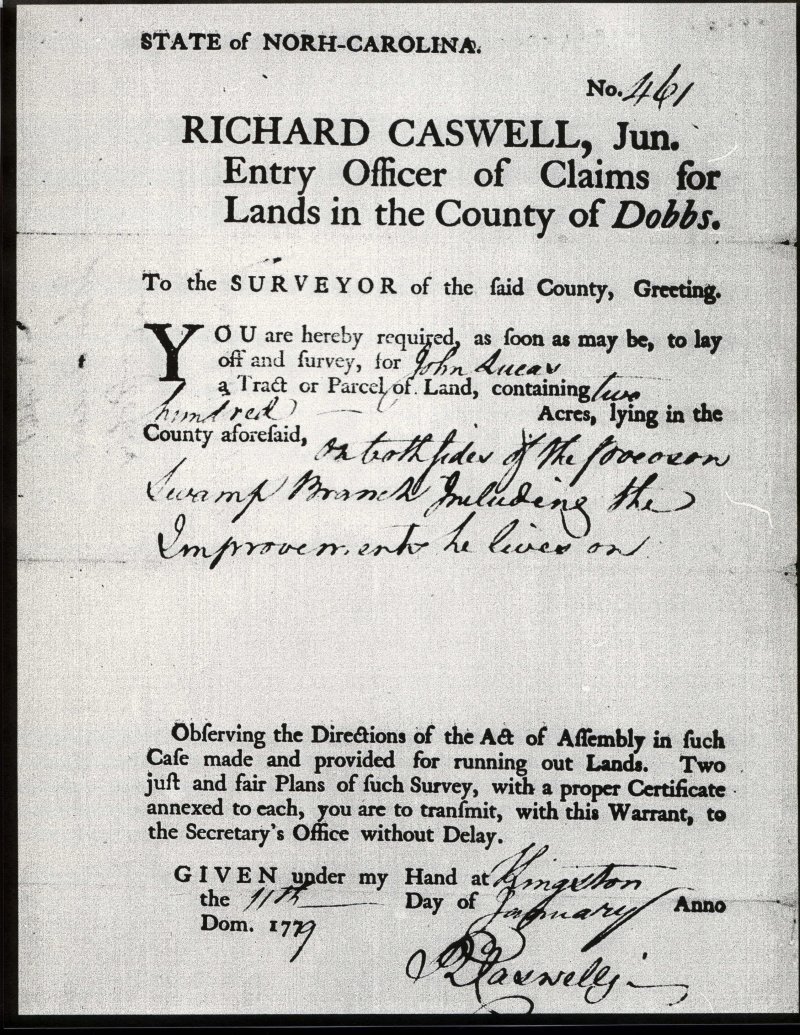 STATE of NORH-CAROLINA.
No. 461
RICHARD CASWELL, Jun.
Entry Officer of Claims for
Lands in the County of Dobbs.
To the SURVEYOR of the ſaid County, Greeting.
YOU are hereby required, as ſoon as may be, to lay
off and survey, for John Lucas
a Tract or Parcel of Land, containing two
hundred Acres, lying in the
County aforeſaid,
on both ſides of the
Swamp Branch Including the
Improvements he lives on
Obſerving the Directions of the Act of Aſſembly in ſuch
Caſe made and provided for running out Lands. Two
juſt and fair Plans of ſuch Survey, with a proper Certificate
annexed to each, you are to tranſmit, with this Warrant, to
the Secretary's Office without Delay.
GIVEN under my Hand at Kingston
the 11th Day of January Anno
Dom. 1779
R Caswell j